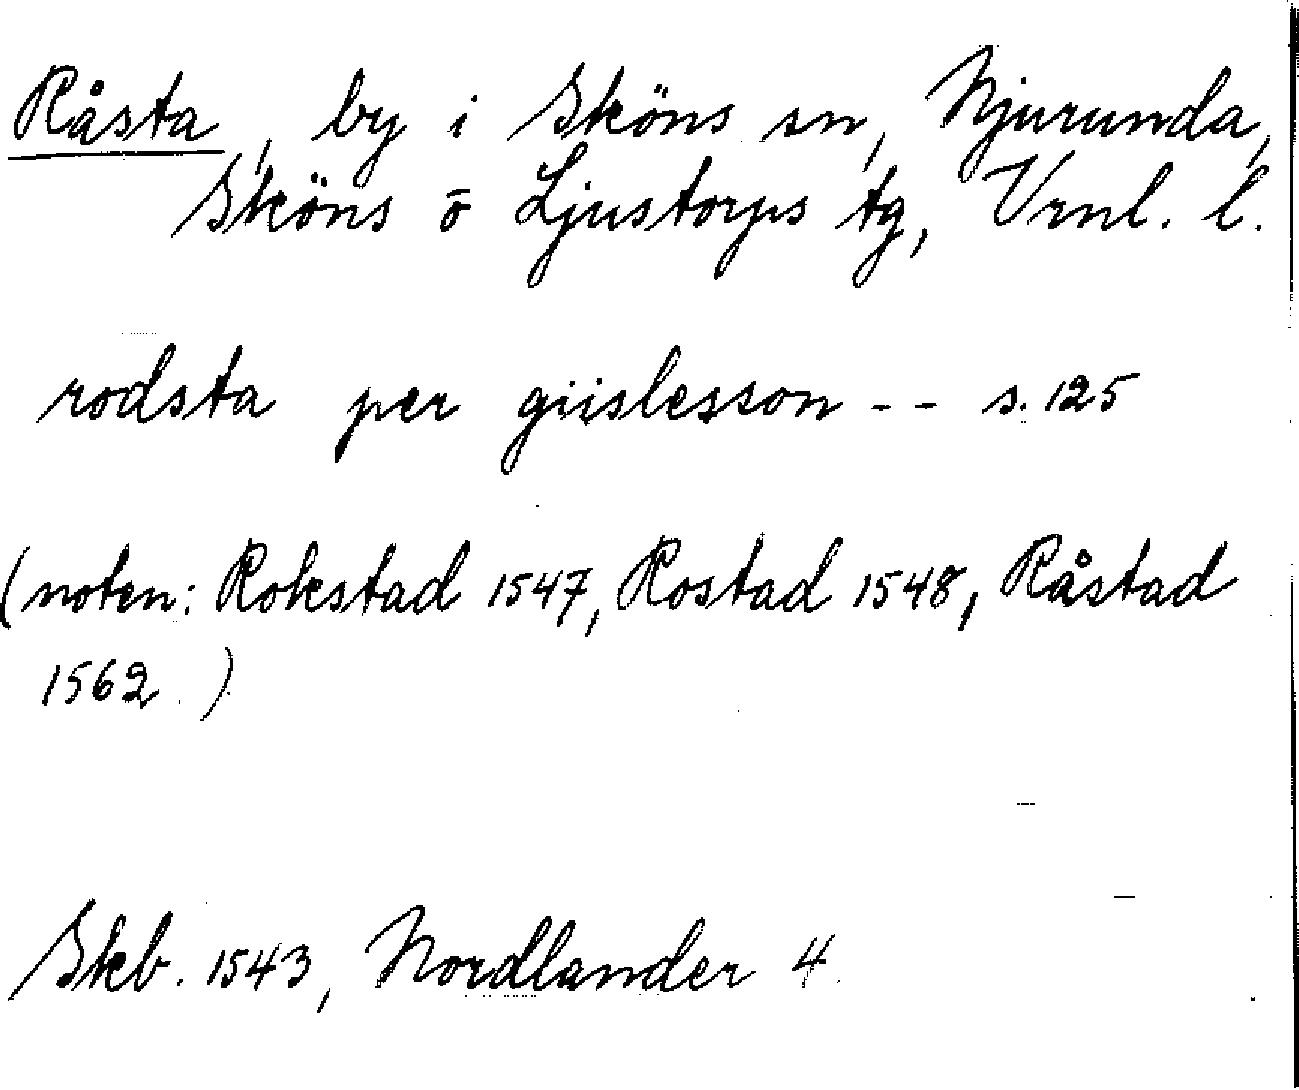 Råsta, by i Sköns sn, Njurunda,
Sköns o Ljustorps tg, Vrnl. l.
rodsta per giislesson -- s. 125
(noten: Rokstad 1547, Rostad 1548, Råstad
1562.)
Skb. 1543, Nordlander 4